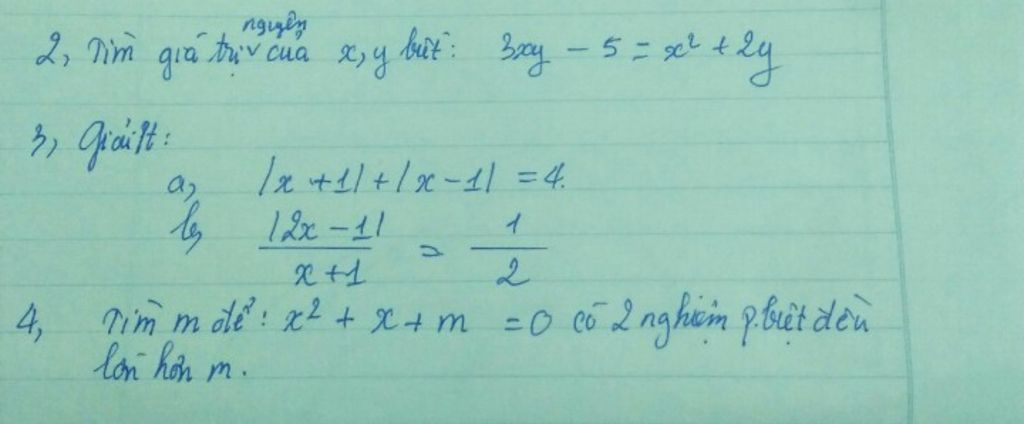 2, Tìm giá trị nguyên của x, y biết: 3xy - 5 = x² + 2y
3, Giải Pt:
a, |x + 1| + |x - 1| = 4.
b, |2x - 1| / x + 1 = 1 / 2
4, Tìm m để: x² + x + m = 0 có 2 nghiệm p.biệt đều
lớn hơn m.